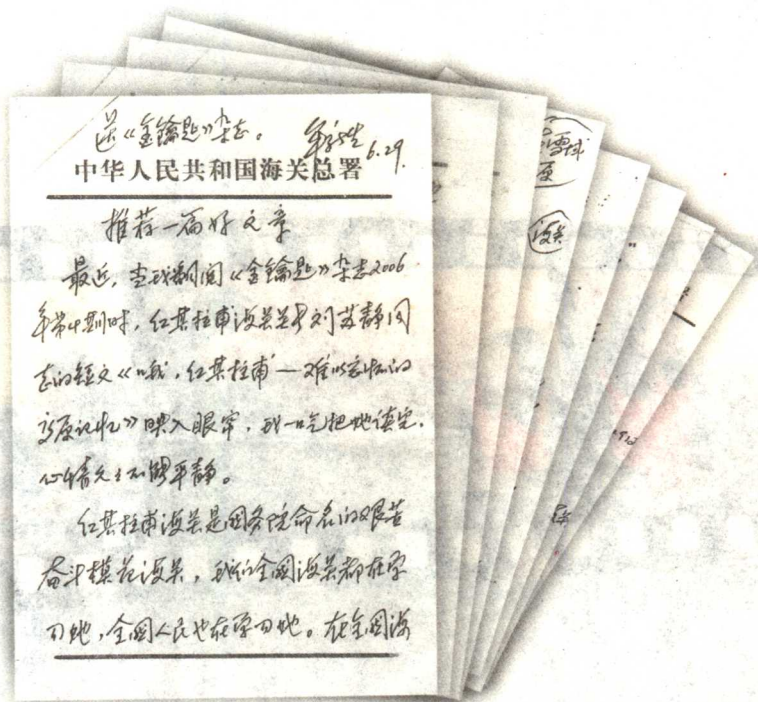 送《金钥匙》杂志。
6.29.
中华人民共和国海关总署
推荐一篇好文章
最近，当我翻阅《金钥匙》杂志2006
年第4期时，红其拉甫海关关员刘苏静同
志的短文《哦，红其拉甫——难以忘怀的
高原记忆》映入眼帘，我一口气把她读完，
心情久久不能平静。
红其拉甫海关是国务院命名的艰苦
奋斗模范海关，我们全国海关都在学
习她，全国人民也在学习她。在全国海
海关